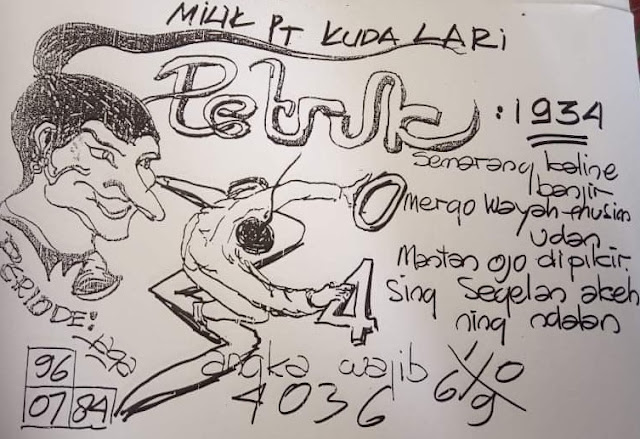 MILIK PT KUDA LARI
Petruk : 1934
Semarang kaline
banjir
merqo wayah musim
udan
Mantan ojo dipikir
Sing Segelan akeh
ning ndalan
0
4
PERIODE:
96
07 84
angka wajib
4036
1 0
6 9